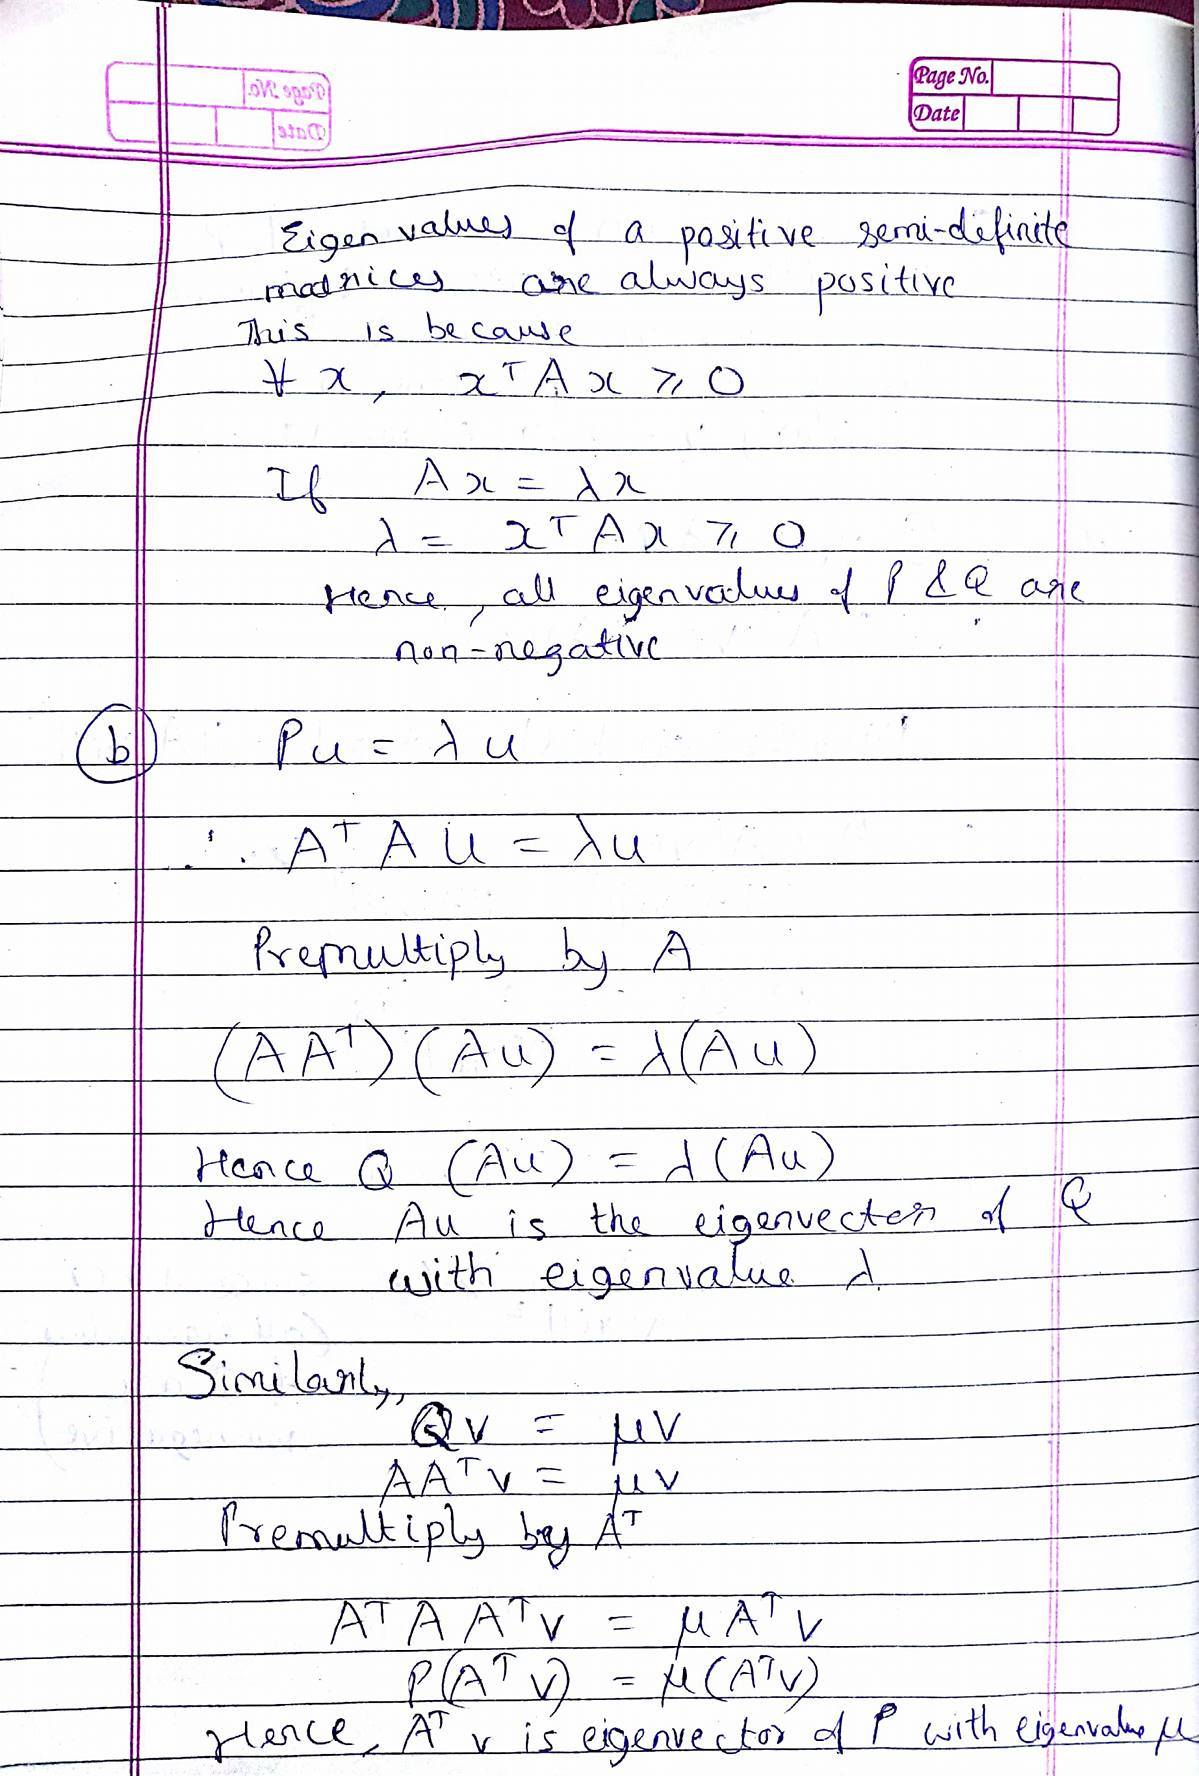 Page No.
Date
Eigen values of a positive semi-definite
matrices are always positive
This is because
∀ x, xᵀ A x ⩾ 0
If A x = λ x
λ = xᵀ A x ⩾ 0
Hence, all eigenvalues of P & Q are
non-negative
(b) P u = λ u
∴ Aᵀ A u = λu
Premultiply by A
(A Aᵀ) (Au) = λ(Au)
Hence Q (Au) = λ(Au)
Hence Au is the eigenvector of Q
with eigenvalue λ
Similarly,
Qv = μv
AAᵀv = μv
Premultiply by Aᵀ
Aᵀ A Aᵀ v = μ Aᵀ v
P(Aᵀ v) = μ(Aᵀv)
Hence, Aᵀ v is eigenvector of P with eigenvalue μ